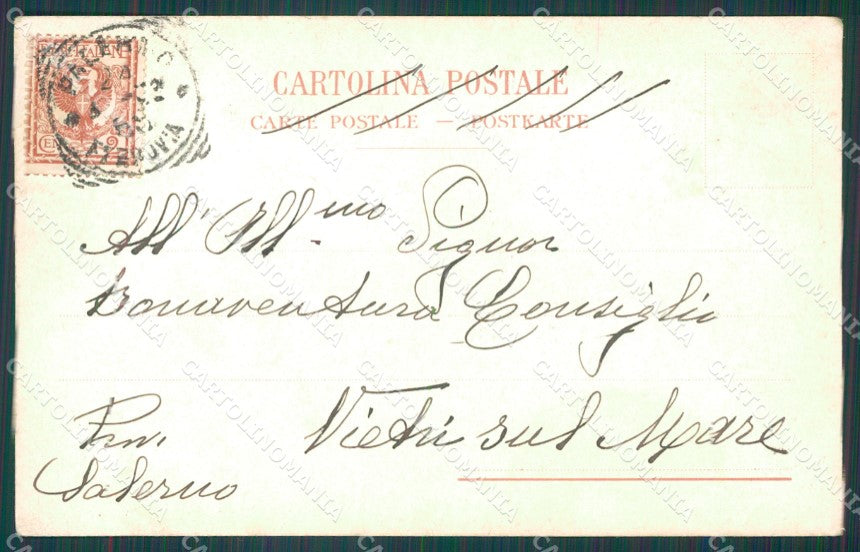 CARTOLINA POSTALE
CARTE POSTALE — POSTKARTE
All' Ill.mo Signor
Bonaventura Consiglio
Vietri sul Mare
Prov.
Salerno
CARTOLINOMANIA